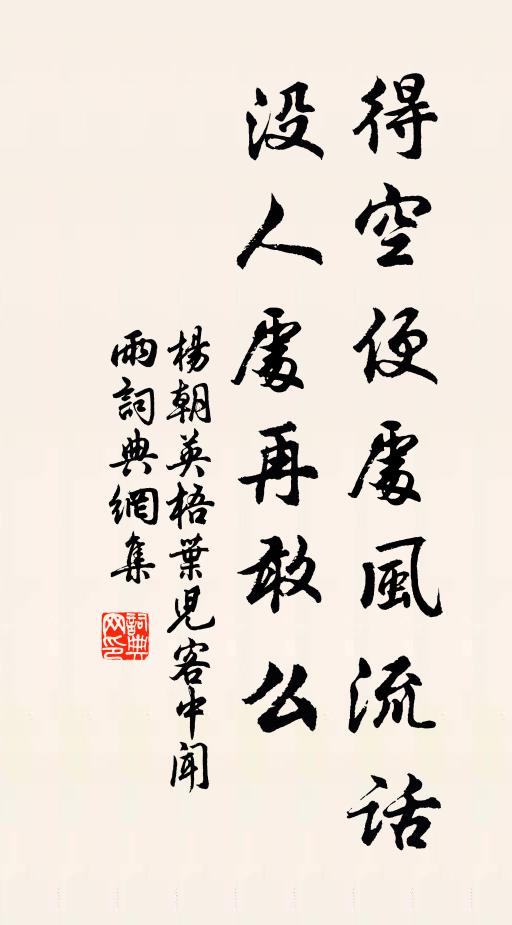 得空便處風流話
没人處再敢么
楊朝英梧葉兒客中聞
雨詞典網集
詞典网印